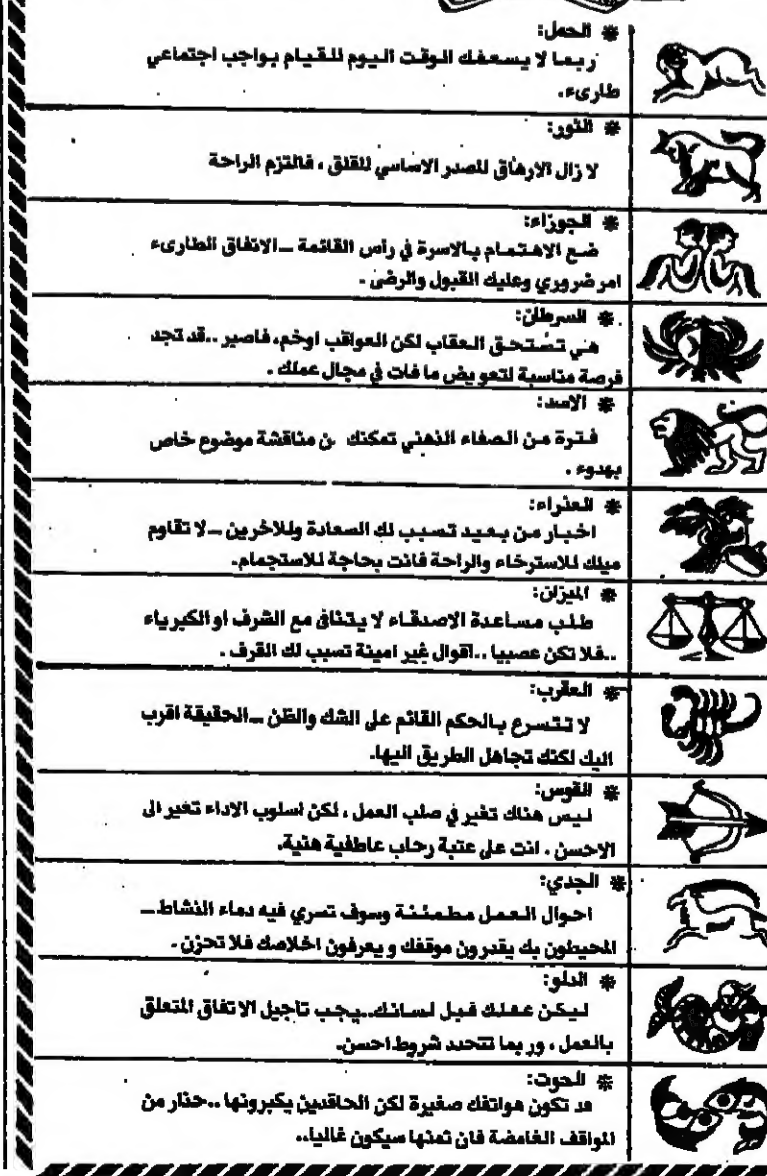 * الحمل:
ربما لا يسعفك الوقت اليوم للقيام بواجب اجتماعي
طارىء.
* الثور:
لا زال الارهاق المصدر الاساسي للقلق ، فالتزم الراحة
* الجوزاء:
ضع الاهتمام بالاسرة في راس القائمة _ الانفاق الطارىء
امر ضروري وعليك القبول والرضى .
* السرطان:
هي تستحق العقاب لكن العواقب اوخم، فاصبر .. قد تجد
فرصة مناسبة لتعويض ما فات في مجال عملك .
* الاسد:
فترة من الصفاء الذهني تمكنك ن مناقشة موضوع خاص
بهدوء .
* العذراء:
اخبار من بعيد تسبب لك السعادة وللاخرين _ لا تقاوم
ميلك للاسترخاء والراحة فانت بحاجة للاستجمام.
* الميزان:
طلب مساعدة الاصدقاء لا يتنافى مع الشرف او الكبرياء
.. فلا تكن عصبيا .. اقوال غير امينة تسبب لك القرف .
* العقرب:
لا تتسرع بالحكم القائم على الشك والظن _ الحقيقة اقرب
اليك لكنك تجاهل الطريق اليها.
* القوس:
ليس هناك تغير في صلب العمل ، لكن اسلوب الاداء تغير الى
الاحسن . انت على عتبة رحاب عاطفية هنية.
* الجدي:
احوال العمل مطمئنة وسوف تسري فيه دماء النشاط _
المحيطون بك يقدرون موقفك ويعرفون اخلاصك فلا تحزن .
* الدلو:
ليكن عملك قبل لسانك .. يجب تاجيل الاتفاق المتعلق
بالعمل ، وربما تتحدد شروط احسن.
* الحوت:
قد تكون هواتفك صغيرة لكن الحاقدين يكبرونها .. حذار من
المواقف الغامضة فان ثمنها سيكون غاليا..